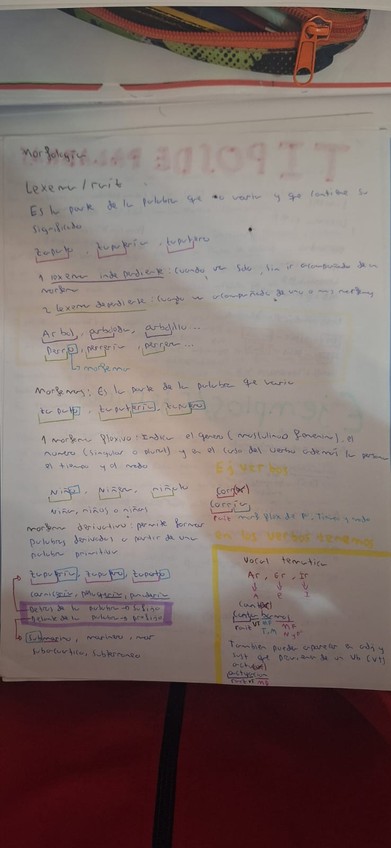 Morfología
Lexema / raíz
Es la parte de la palabra que no varía y que contiene su
significado
Zapato, zapatería, zapatero
1 Lexema independiente: cuando va solo, sin ir acompañado de
morfema
2 Lexema dependiente: cuando va acompañado de uno o más morfemas
Arbol, arboleda, arbolillo...
Perro, perrería, perrera...
morfema
Morfemas: Es la parte de la palabra que varía
Zapato, zapatería, zapatero
1 morfema flexivo: Indica el genero (masculino o femenino), el
numero (singular o plural) y en el caso del verbo además la persona
el tiempo y el modo
Ej verbos
Niño, niñez, niñato
niño, niños o niñas
Raíz
morfema derivativo: permite formar
palabras derivadas a partir de una
palabra primitiva
en los verbos tenemos
Zapatería, zapatero, zapato
carnicería, panadería
Detrás de la palabra → sufijo
Delante de la palabra → prefijo
Submarino, marinero, mar
subacuático, subterráneo
Vocal temática
Ar, Er, Ir
A E I
Cantar
Cantábamos
raíz VT
T.M N.P
También puede aparecer en adj y
sust que provienen de un vb (VT)
TIPOS DE PALABRAS